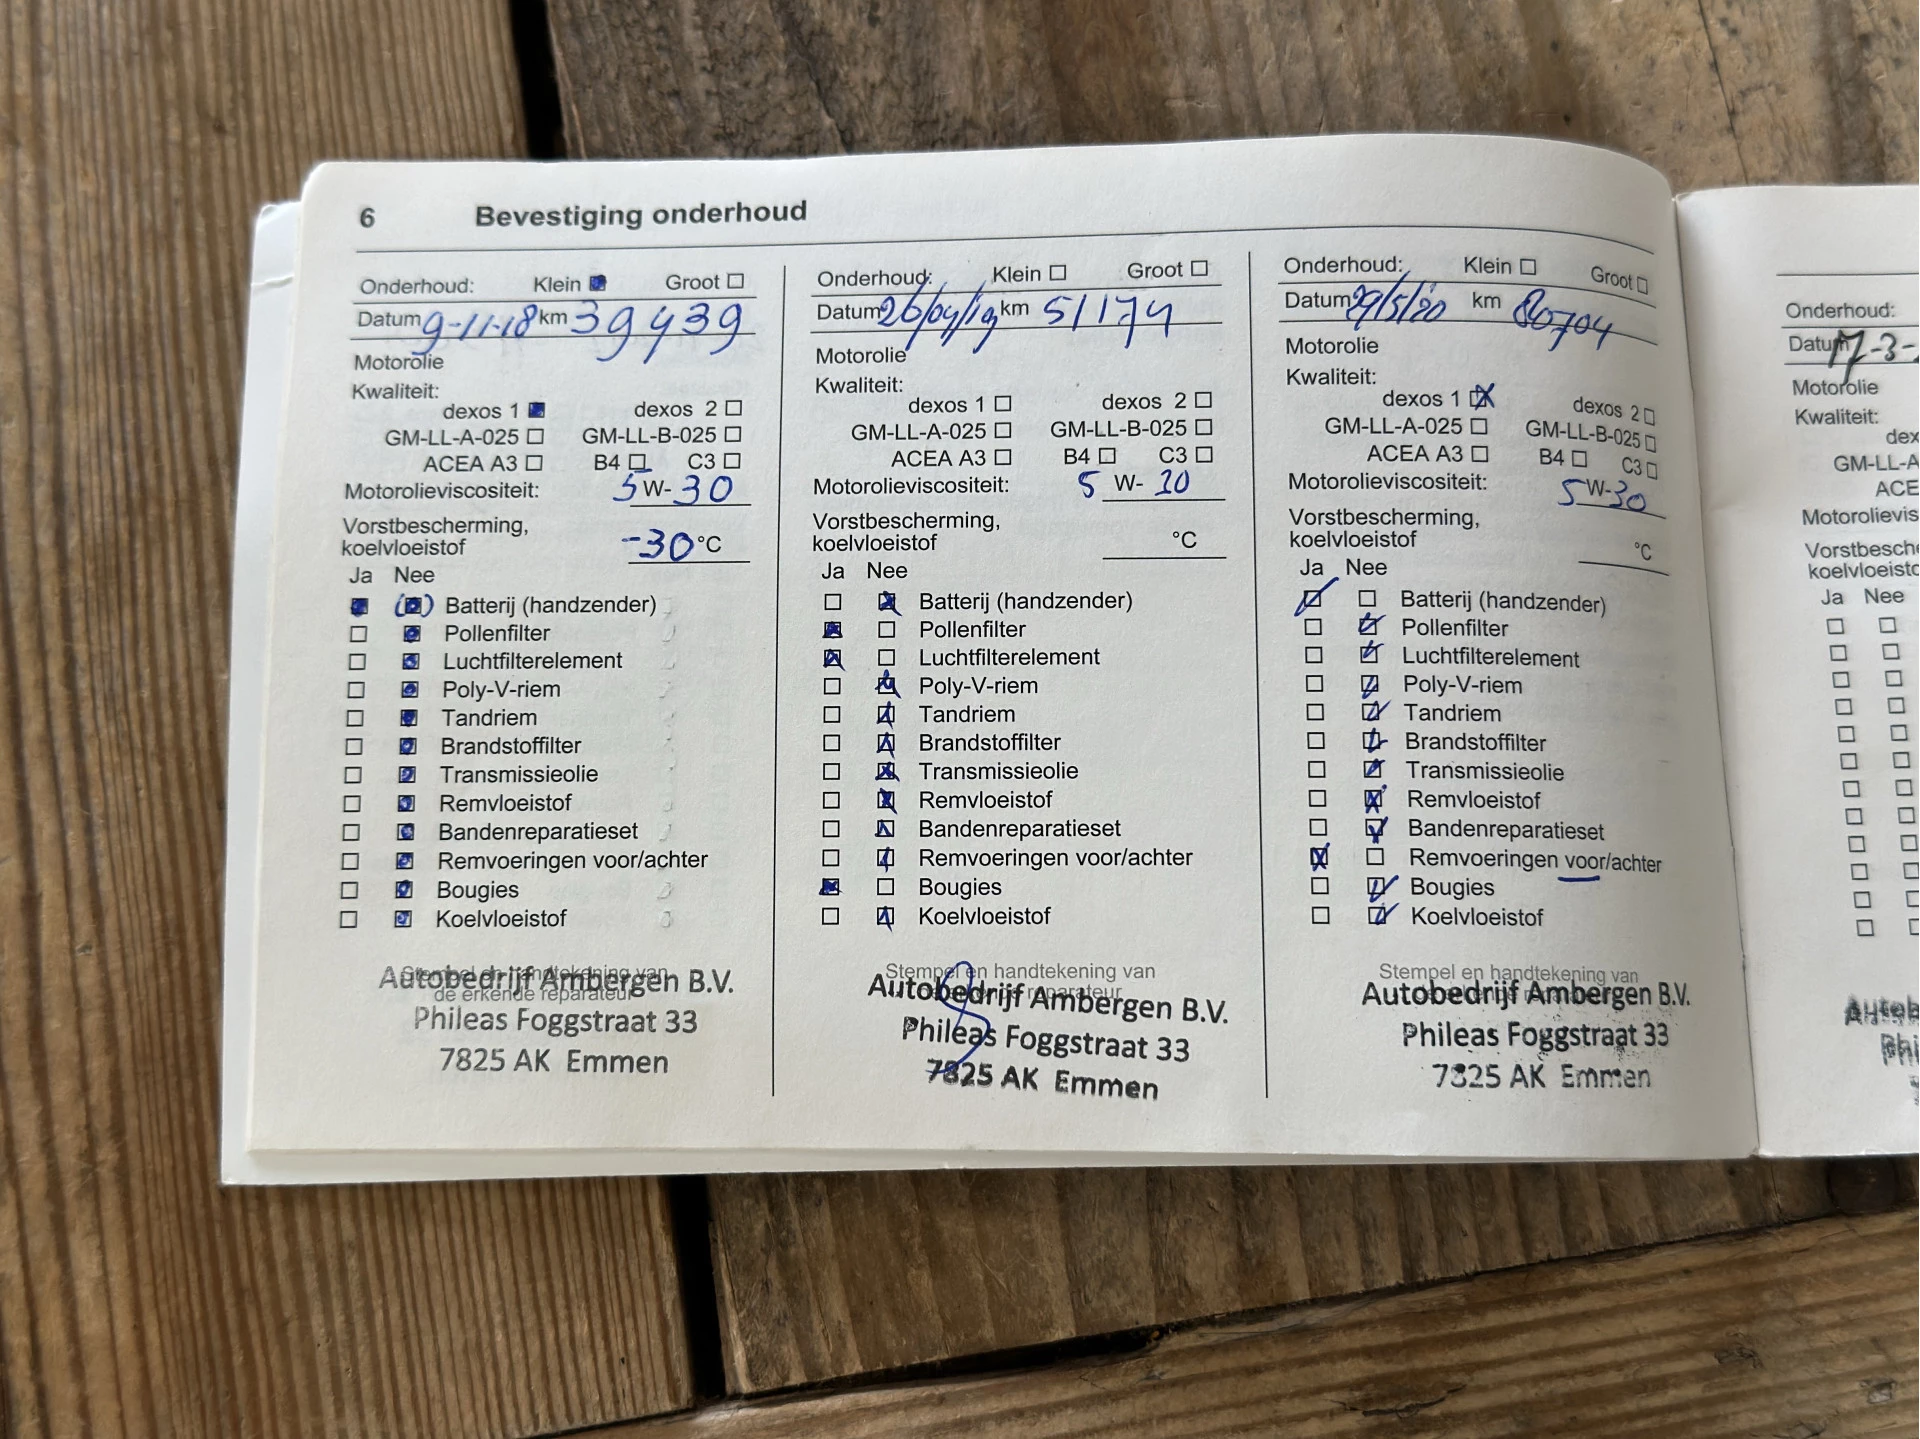 6 Bevestiging onderhoud
Onderhoud: Klein Groot
Datum 9-11-18 km 39439
Motorolie
Kwaliteit:
dexos 1 dexos 2
GM-LL-A-025 GM-LL-B-025
ACEA A3 B4 C3
Motorolieviscositeit: 5 W- 30
Vorstbescherming,
koelvloeistof -30 °C
Ja Nee
Batterij (handzender)
Pollenfilter
Luchtfilterelement
Poly-V-riem
Tandriem
Brandstoffilter
Transmissieolie
Remvloeistof
Bandenreparatieset
Remvoeringen voor/achter
Bougies
Koelvloeistof
Stempel en handtekening van
de erkende reparateur
Autobedrijf Ambergen B.V.
Phileas Foggstraat 33
7825 AK Emmen
Onderhoud: Klein Groot
Datum 26/04/19 km 51174
Motorolie
Kwaliteit:
dexos 1 dexos 2
GM-LL-A-025 GM-LL-B-025
ACEA A3 B4 C3
Motorolieviscositeit: 5 W- 30
Vorstbescherming,
koelvloeistof °C
Ja Nee
Batterij (handzender)
Pollenfilter
Luchtfilterelement
Poly-V-riem
Tandriem
Brandstoffilter
Transmissieolie
Remvloeistof
Bandenreparatieset
Remvoeringen voor/achter
Bougies
Koelvloeistof
Stempel en handtekening van
Autobedrijf Ambergen B.V.
Phileas Foggstraat 33
7825 AK Emmen
Onderhoud: Klein Groot
Datum 29/5/20 km
Motorolie
Kwaliteit:
dexos 1 dexos 2
GM-LL-A-025 GM-LL-B-025
ACEA A3 B4 C3
Motorolieviscositeit: 5 W- 30
Vorstbescherming,
koelvloeistof °C
Ja Nee
Batterij (handzender)
Pollenfilter
Luchtfilterelement
Poly-V-riem
Tandriem
Brandstoffilter
Transmissieolie
Remvloeistof
Bandenreparatieset
Remvoeringen voor/achter
Bougies
Koelvloeistof
Stempel en handtekening van
Autobedrijf Ambergen B.V.
Phileas Foggstraat 33
7825 AK Emmen
Onderhoud:
Datum 17-3-
Motorolie
Kwaliteit:
dex
GM-LL-A
ACE
Motorolievis
Vorstbesche
koelvloeisto
Ja Nee